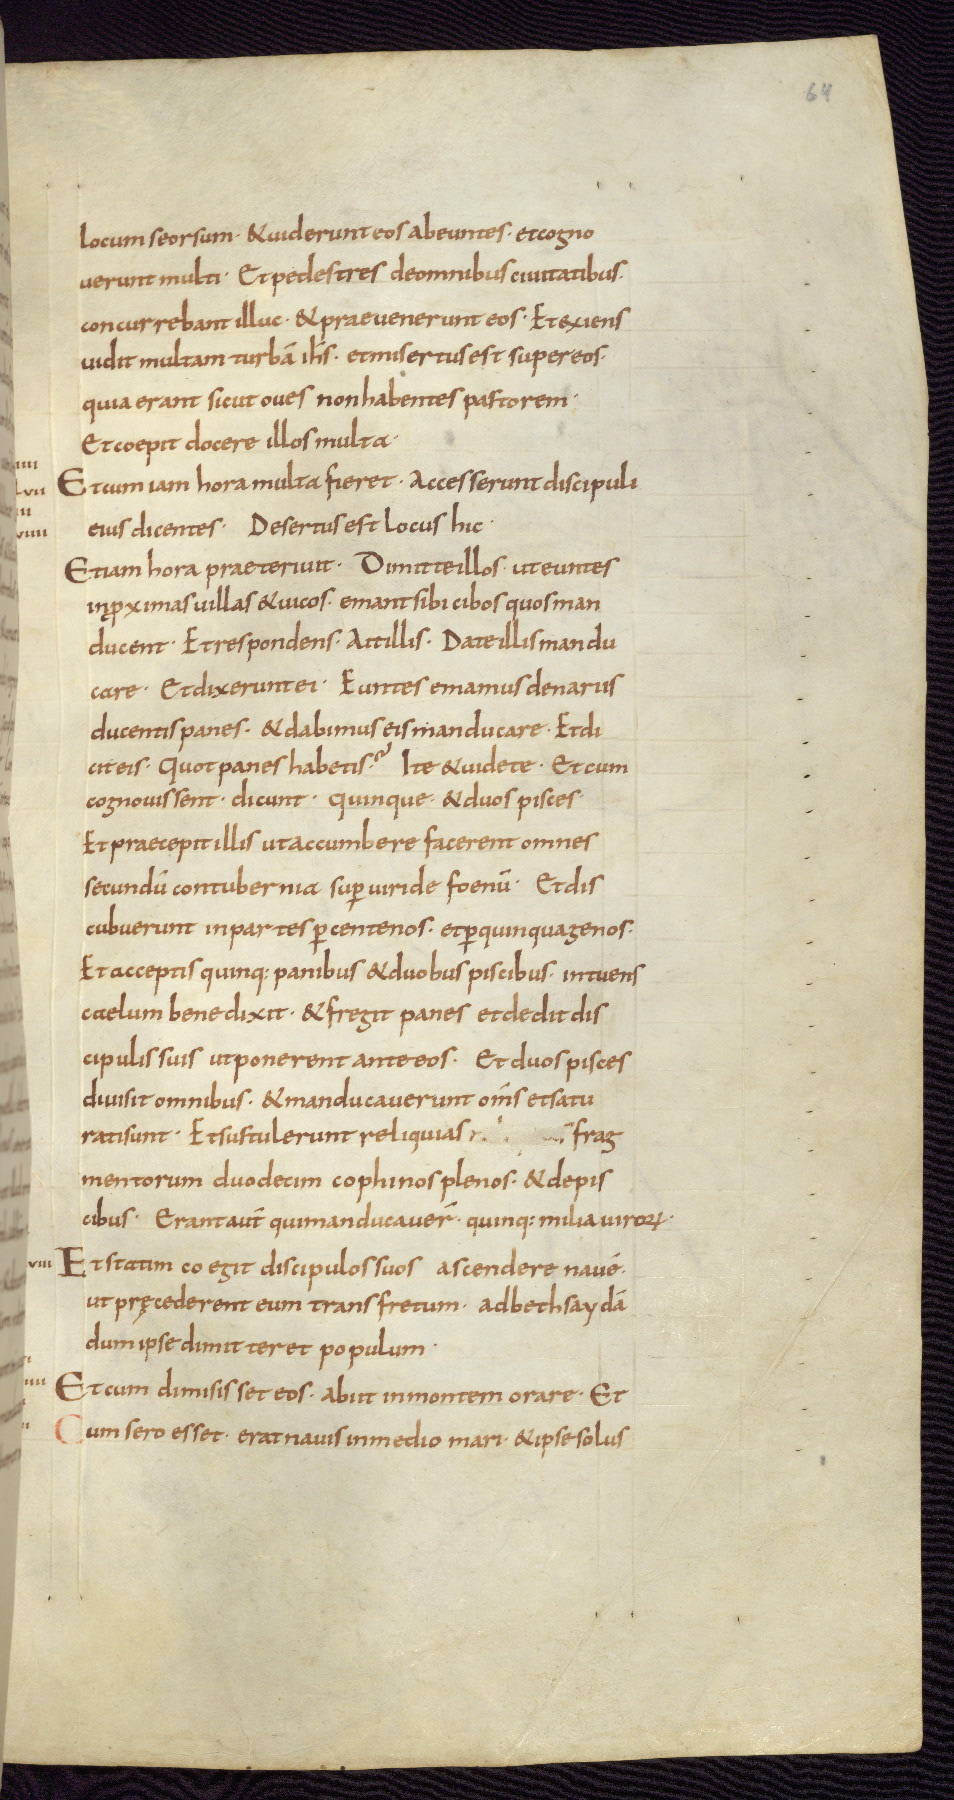 64
locum seorsum· & uiderunt eos abeuntes· et cogno
uerunt multi· Et pedestres de omnibus ciuitatibus·
concurrebant illuc· & praeuenerunt eos· Et exiens
uidit multam turbā ih̄s· et misertus est super eos·
quia erant sicut oues non habentes pastorem·
Et coepit docere illos multa·
Et cum iam hora multa fieret· Accesserunt discipuli
eius dicentes· Desertus est locus hic·
Et iam hora praeteriuit· Dimitte illos· ut euntes
in ꝓximas uillas & uicos· emant sibi cibos quos man
ducent· Et respondens· Ait illis· Date illis mandu
care· Et dixerunt ei· Euntes emamus denariis
ducentis panes· & dabimus eis manducare· Et di
cit eis· Quot panes habetis? Ite & uidete· Et cum
cognouissent· dicunt· quinque· & duos pisces·
Et praecepit illis ut accumbere facerent omnes
secundū contubernia suꝑ uiride foenū· Et dis
cubuerunt in partes ꝑ centenos· et ꝑ quinquagenos·
Et acceptis quinq: panibus & duobus piscibus· intuens
caelum benedixit· & fregit panes et dedit dis
cipulis suis ut ponerent ante eos· Et duos pisces
diuisit omnibus· & manducauerunt om̄s et satu
rati sunt· Et sustulerunt reliquias frag
mentorum duodecim cophinos plenos· & de pis
cibus· Erant aut̄ qui manducauer̄· quinq: milia uiroꝝ·
viii Et statim coegit discipulos suos ascendere nauē·
ut pręcederent eum trans fretum· ad bethsaydā
dum ipse dimitteret populum·
Et cum dimisisset eos· abiit in montem orare· Et
Cum sero esset· erat nauis in medio mari· & ipse solus